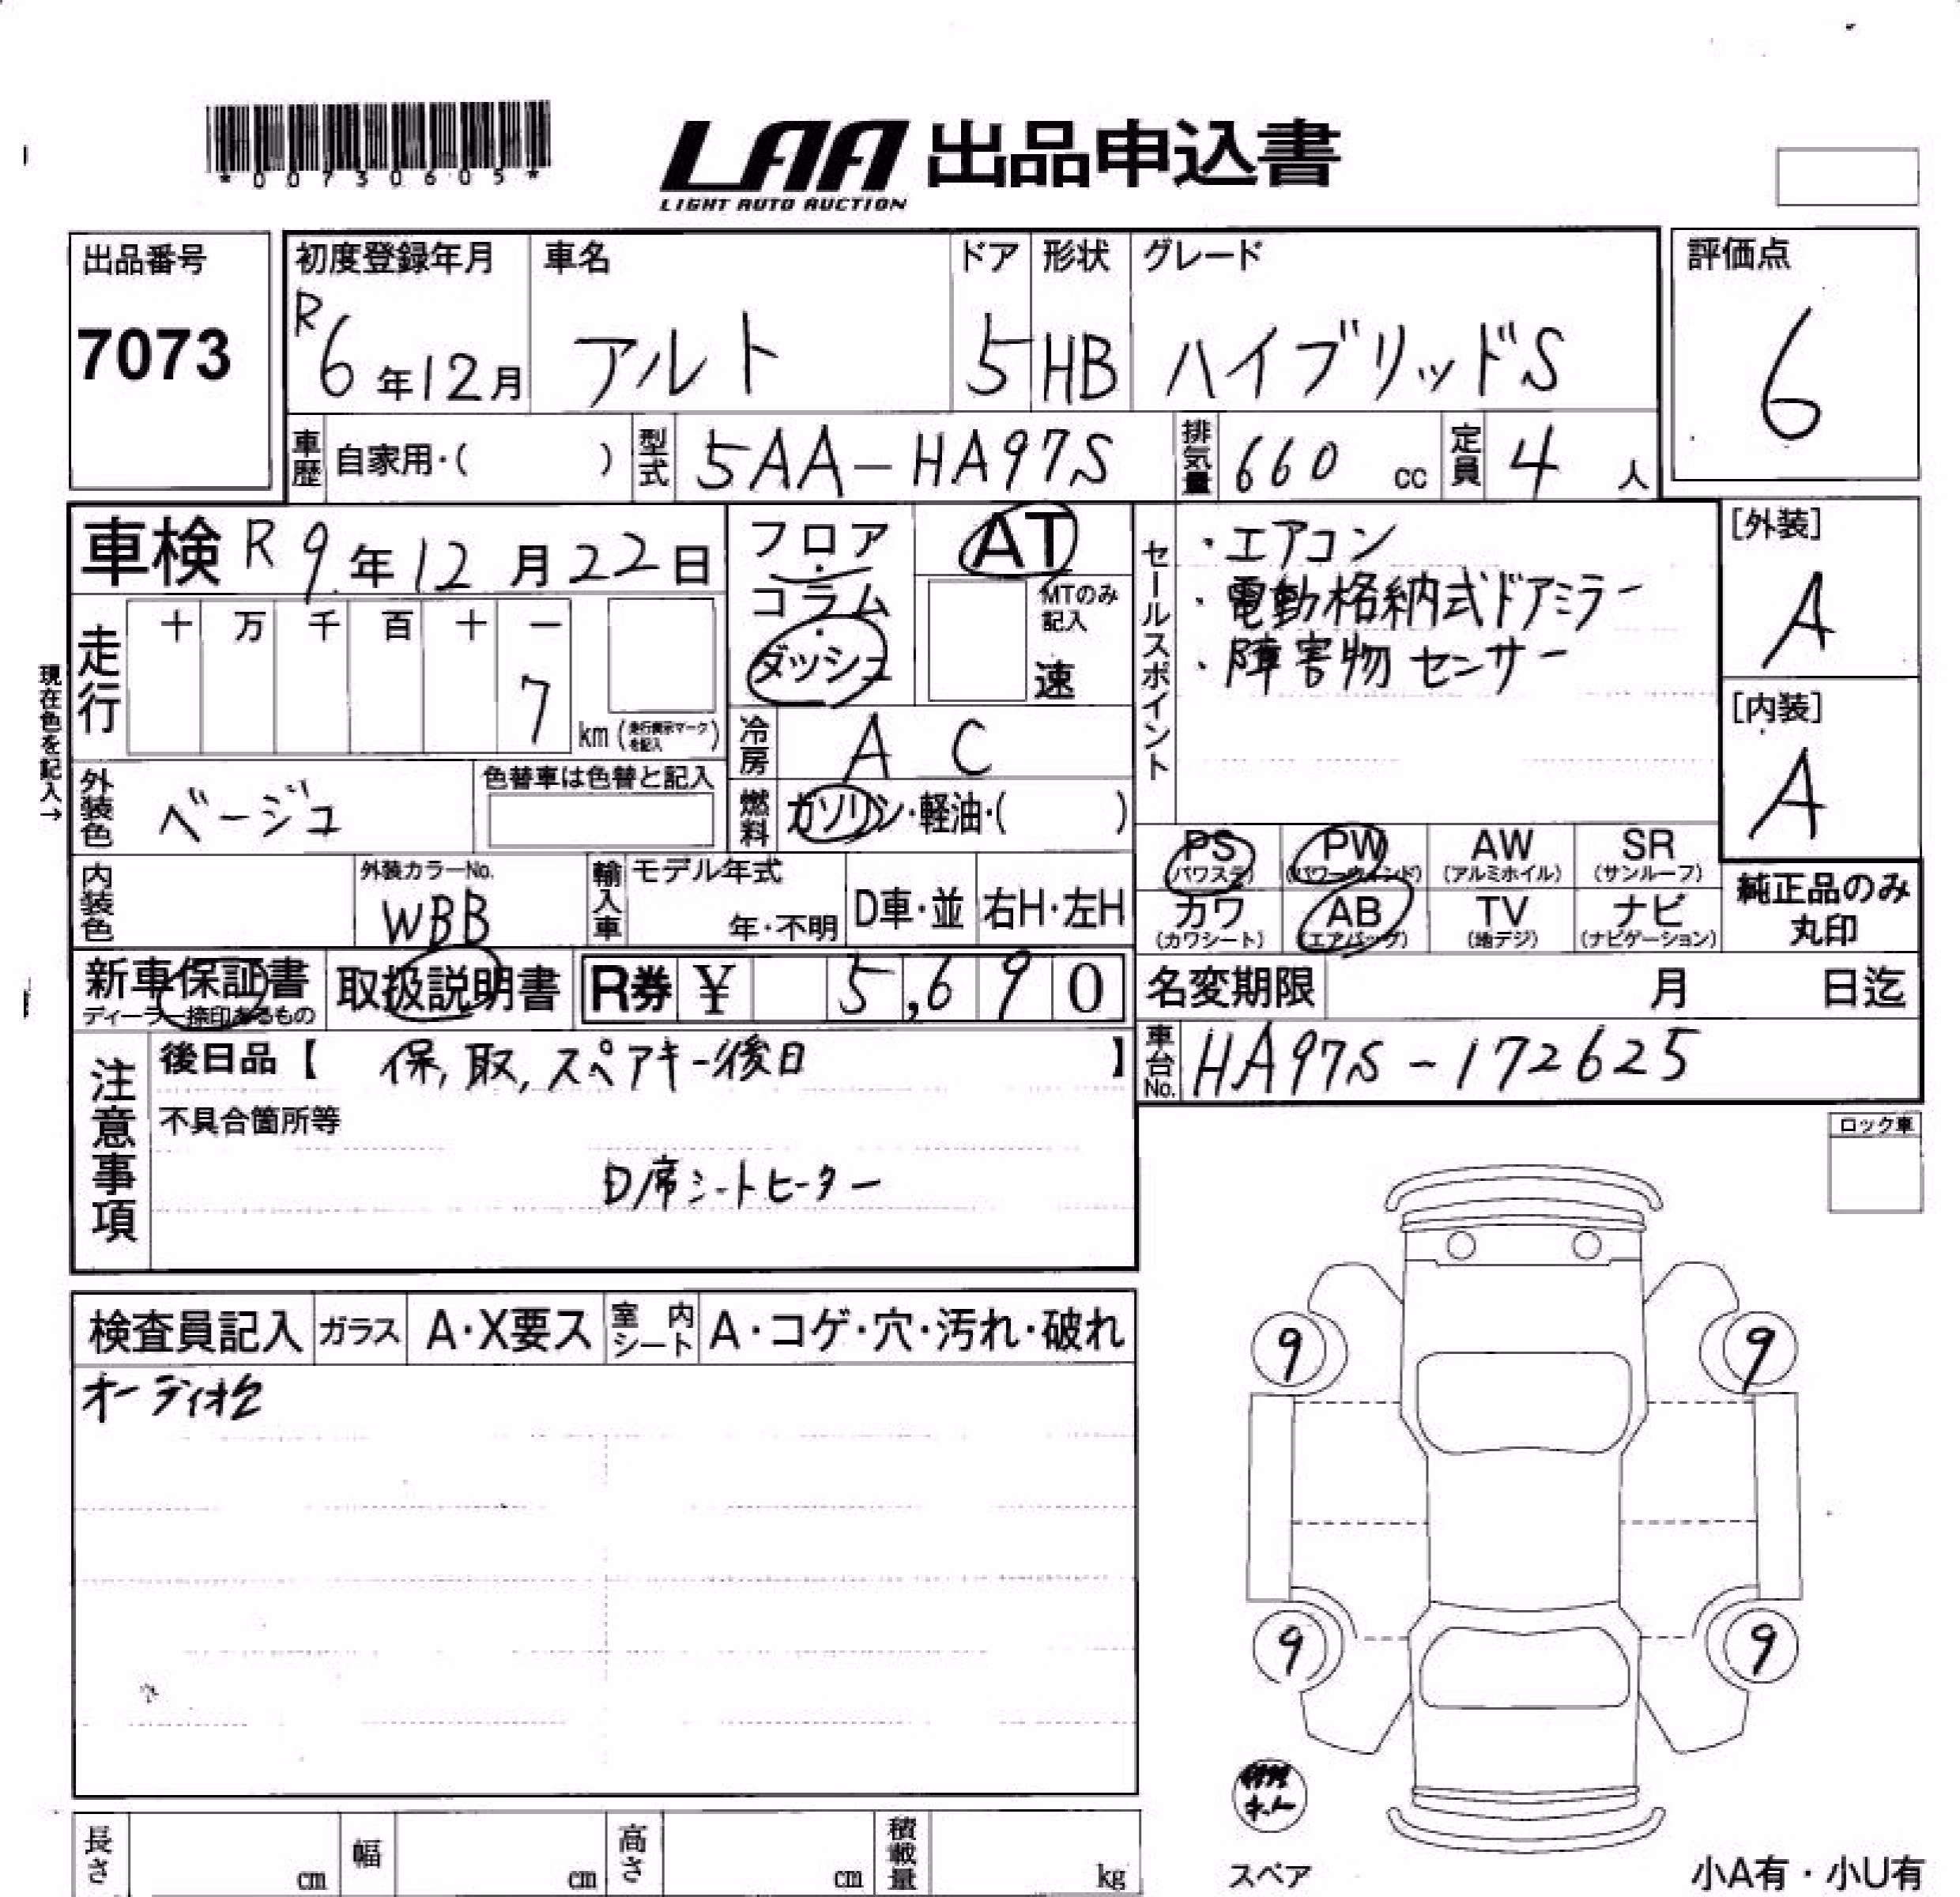 *00730605*
LAA 出品申込書
LIGHT AUTO AUCTION
出品番号
7073
初度登録年月
R6年12月
車名
アルト
ドア
5
形状
HB
グレード
ハイブリッドS
評価点
6
車歴 自家用・( )
型式 5AA-HA97S
排気量 660 cc
定員 4 人
車検 R9年12月22日
走行 十 万 千 百 十 一
7 km (走行表示マークを記入)
現在色を記入→
外装色 ベージュ
色替車は色替と記入
内装色
外装カラーNo.
WBB
フロア・コラム・ダッシュ
AT
MTのみ記入
速
冷房 AC
燃料 ガソリン・軽油・( )
輸入車 モデル年式
年・不明
D車・並 右H・左H
セールスポイント
・エアコン
・電動格納式ドアミラー
・障害物センサー
[外装]
A
[内装]
A
PS (パワステ)
PW (パワーウィンド)
AW (アルミホイル)
SR (サンルーフ)
カワ (カワシート)
AB (エアバッグ)
TV (地デジ)
ナビ (ナビゲーション)
純正品のみ丸印
新車保証書
ディーラー捺印あるもの
取扱説明書
R券 ¥ 5,690
名変期限 月 日迄
車台No. HA97S-172625
注意事項
後日品【 保,取,スペアキー後日 】
不具合箇所等
D席シートヒーター
ロック車
検査員記入 ガラス A・X要ス 室内シート A・コゲ・穴・汚れ・破れ
9
9
9
9
スペア
小A有・小U有
長さ cm
幅 cm
高さ cm
積載量 kg